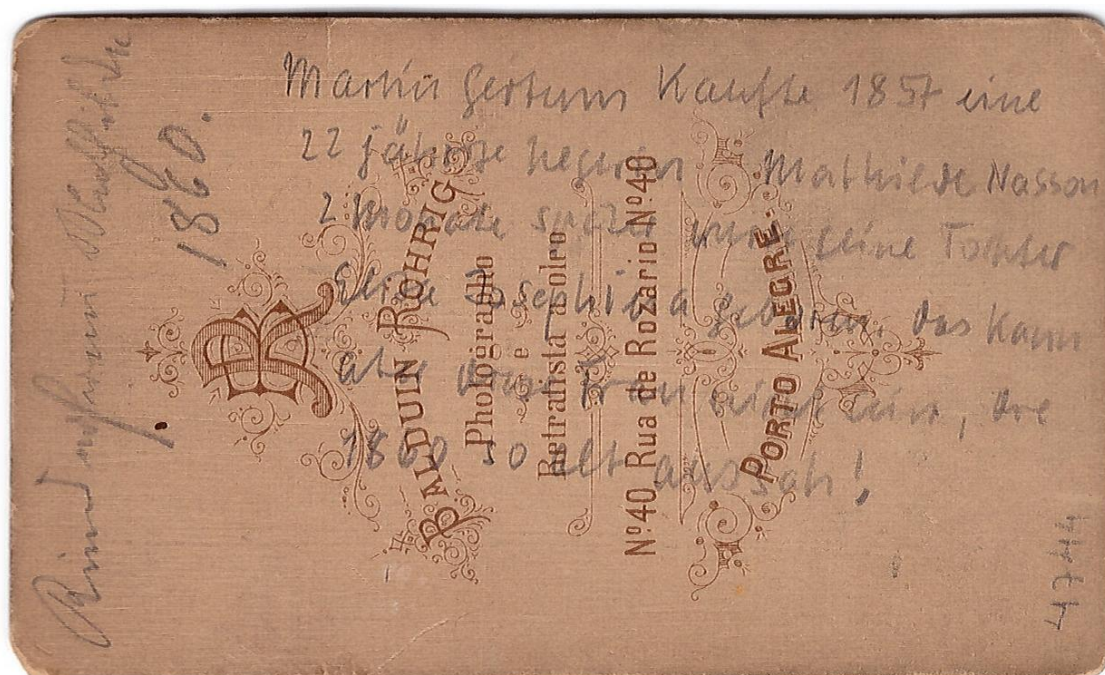 Martin Gertum Kaufte 1857 eine
22 jährige Negerin Mathiede Nasson
2 Monate später wird seine Tochter
Elise Josephina geboren. das kann
aber diese Frau nicht sein, die
1860 so alt aussah!
1860.
BR
BALDUIN RÖHRIG
Photographo
e
Retratista a oleo
Nº40 Rua de Rozario Nº40
PORTO ALEGRE.
4744